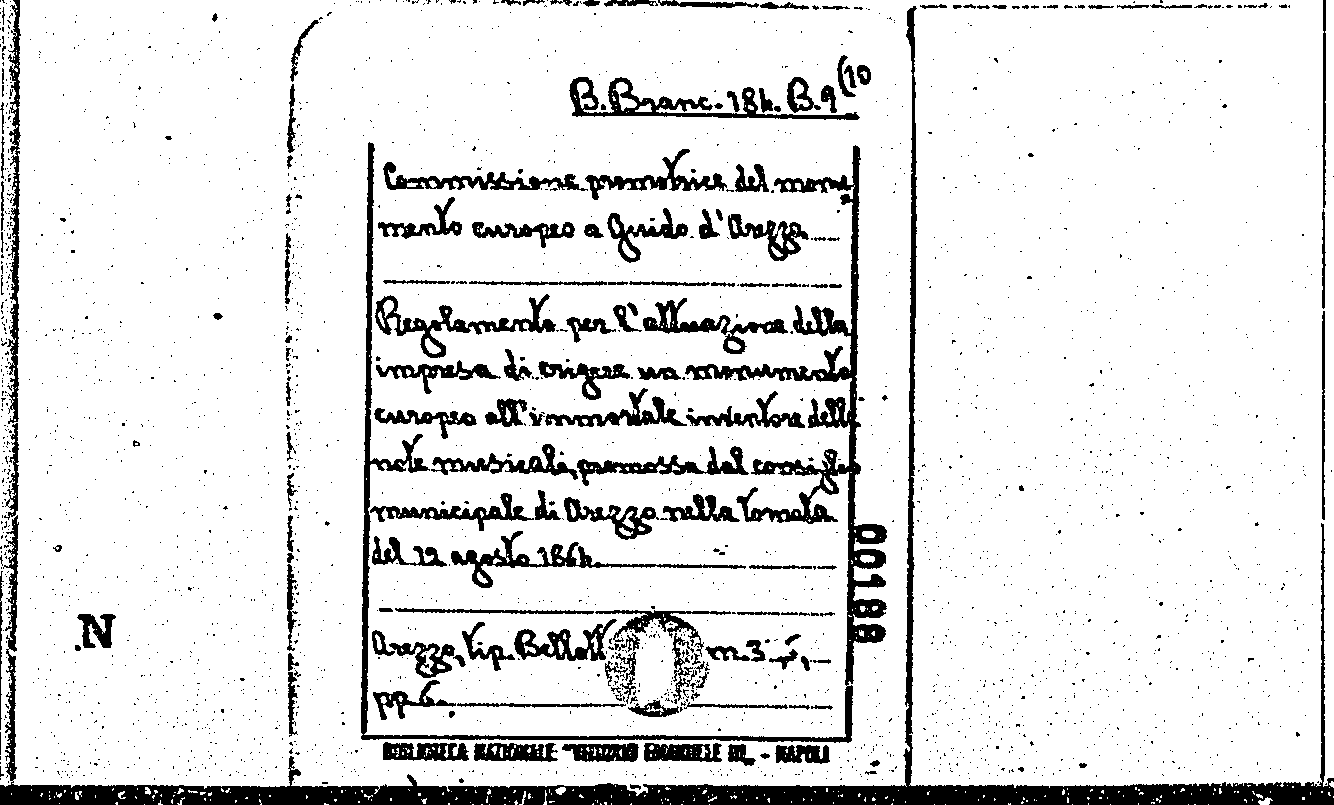 B. Branc. 184. B. 9 (10
Commissione promotrice del monu
mento europeo a Guido d'Arezzo
Regolamento per l'attuazione della
impresa di erigere un monumento
europeo all'immortale inventore delle
note musicali, promossa dal consiglio
municipale di Arezzo nella tornata
del 12 agosto 1864.
00188
N
Arezzo, tip. Bellotti m. 3.
pp. 6.
BIBLIOTECA NAZIONALE "VITTORIO EMANUELE III" - NAPOLI